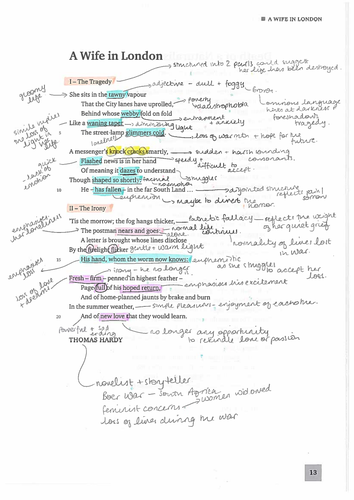 A WIFE IN LONDON
A Wife in London
structured into 2 parts could suggest
her life has been destroyed.
I – The Tragedy
adjective - dull + foggy
gloomy
life
She sits in the tawny vapour
That the City lanes have uprolled,
poverty
claustrophobia
ominous language
hints at darkness +
foreshadows
tragedy.
Behind whose webby fold on fold
Like a waning taper
diminishing
light
entrapment
+ anxiety
The street-lamp glimmers cold.
loss of warmth + hope for the
future.
A messenger's knock cracks smartly,
sudden + harsh sounding
consonants.
Flashed news is in her hand
speedy +
difficult to
accept.
Of meaning it dazes to understand
Though shaped so shortly:
struggles
He – has fallen – in the far South Land …
disjointed structure
reflects pain/
euphemism
maybe to divert the
horror.
II – The Irony
'Tis the morrow; the fog hangs thicker,
pathetic fallacy
reflects the weight
of her quiet grief
The postman nears and goes:
normal life
continues.
A letter is brought whose lines disclose
normality of lives lost
in war
By the firelight flicker
gentle + warm light
His hand, whom the worm now knows:
euphemistic
as she struggles
to accept her
loss.
irony - he no longer
Fresh – firm – penned in highest feather –
Page-full of his hoped return,
emphasises his excitement
And of home-planned jaunts by brake and burn
In the summer weather,
simple pleasures - enjoyment of each other.
And of new love that they would learn.
powerful + sad
ending
no longer any opportunity
to rekindle love or passion
THOMAS HARDY
novelist + storyteller
Boer War - South Africa
feminist concerns - women widowed
loss of lives during the war
13